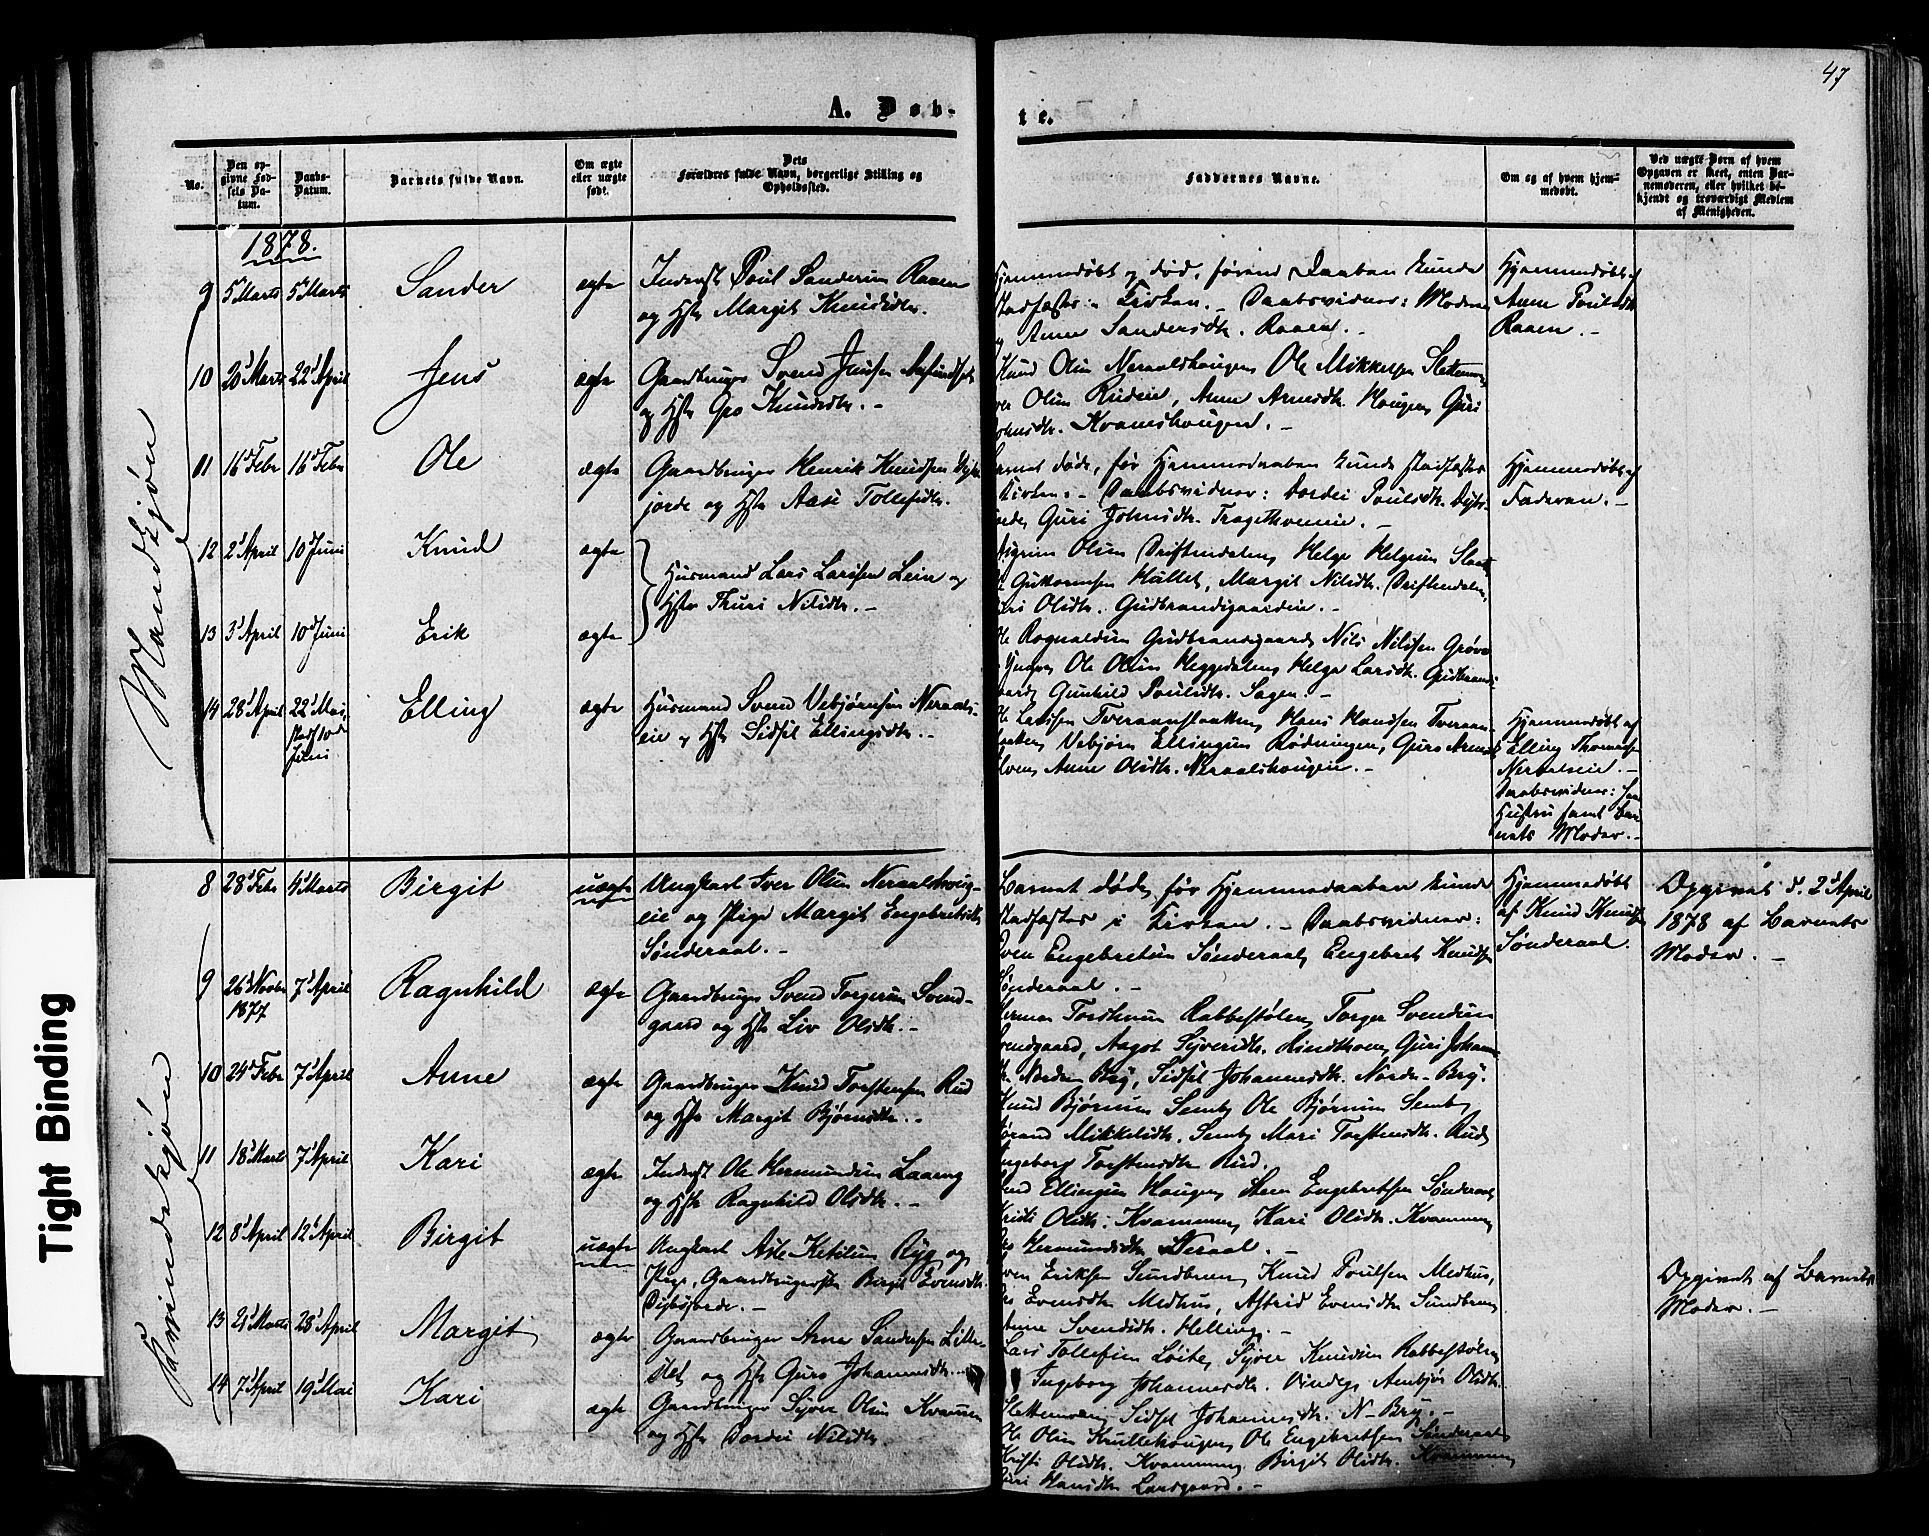 47
A. Døb-
te.
No.
Den op-
givne Fød-
sels Da-
tum.
Daabs-
Datum.
Barnets fulde Navn.
Om ægte
eller uægte
født.
Dets
Forældres fulde Navn, borgerlige Stilling og
Opholdssted.
Faddernes Navne.
Om og af hvem hjem-
medøbt.
Ved uægte Børn af hvem
Opgaven er skeet, enten Bar-
nemoderen, eller hvilket be-
kjendt og troværdigt Medlem
af Menigheden.
1878.
Mandkjøn
9 5 Marts 5 Marts Sander ægte
Inderst Poul Sandersen Raaen
og Hstr Margit Knudsdtr.
Hjemmedøbt og død, førend Daaben kunde
stadfæstes i Kirken. - Daabsvidner: Moderen
og Anne Sandersdtr. Raaen. -
Hjemmedøbt af
Anne Poulsdtr
Raaen. -
10 20 Marts 22 April Jens ægte
Gaardbruger Svend Jensen
og Hstr Gro Knudsdtr. -
Knud Olsen Neraalshougen Ole Mikkelsen Slettemoen
Olsen Ruden, Anne Arnesdtr. Hougen, Guri
Kvamshougen. -
11 16 Febr 16 Febr Ole ægte
Gaardbruger Henrik Knudsen Dybs-
jorde og Hstr Aase Tollefsdtr.
Barnet døde, før Hjemmedaaben kunde stadfæstes
Kirken. - Daabsvidner: Dordei Poulsdtr. Dybs-
jorde, Guri Johnsdtr. Tragethonen. -
Hjemmedøbt af
Faderen. -
12 2 April 10 Juni Knud ægte
Husmand Lars Larssen Lein og
Hstr Thuri Nilsdtr. -
Olsen Driftendalen, Helge Helgesen
Guttormsen Hallet, Margit Nilsdtr. Driftendalen,
Olsdtr. Gudbrandsgaarden. -
13 3 April 10 Juni Erik ægte
Ole Rognaldsen Gudbransgaard, Nils Nilssen
Ole Olsen Heggedalen, Helge Larsdtr. Gudbrands
gaard, Gunhild Poulsdtr. Sagen. -
14 28 April 22 Mai,
stadf 10de
Juni
Elling ægte
Husmand Svend Vebjørnsen Neraals-
eie og Hstr Sidsel Ellingsdtr. -
Ole Larssen Tveraanstaaken, Hans Hanssen Tveraan
staaken, Vebjørn Ellingsen Rødningen, Guro
Anne Olsdtr. Neraalshougen. -
Hjemmedøbt af
Elling Thomassen
Neraalseie. -
Daabsvidner:
Hustru samt Bar-
nets Moder. -
Kvindekjøn
8 28 Febr 4 Marts Birgit uægte
Ungkarl Iver Olsen Neraalshoug-
eie og Pige Margit Engebretsdtr.
Sønderaal. -
Barnet døde, før Hjemmedaaben kunde
stadfæstes i Kirken. - Daabsvidner:
Even Engebretsen Sønderaal, Engebret Knudsen
Sønderaal. -
Hjemmedøbt
af Knud Knudsen
Sønderaal.
Opgivet d. 2 April
1878 af Barnets
Moder. -
9 26 Novbr
1877
7 April Ragnhild ægte
Gaardbruger Svend Torgersen Svend-
gaard og Hstr Liv Olsdtr. -
Herman Torstensen Rabbestølen, Torger Svendsen
Svendgaard, Aagot Syversdtr. Lindthoen, Guri Johann
Nordre Bry, Sidsel Johannesdtr. Nordre-Bry.
10 24 Febr 7 April Anne ægte
Gaardbruger Knud Torstensen Rud
og Hstr Margit Bjørnsdtr. -
Knud Bjørnsen Semb, Ole Bjørnsen Semb,
Jørand Mikkelsdtr. Semb, Mari Torstensdtr. Rud,
Ingeborg Torstensdtr Rud.
11 18 Marts 7 April Kari ægte
Inderst Ole Hermundsen Laaveg
og Hstr Ragnhild Olsdtr. -
Ellingsen Hougen, Sten Engebretsen Sønderaal,
Kristi Olsdtr. Kvammen, Kari Olsdtr. Kvammen,
Hermundsdtr Neraal. -
12 8 April 12 April Birgit uægte
Ungkarl Asle Ketilsen Ryg og
Pige, Gaardbrugerske Birgit Evensdtr.
Dybsjorde. -
Even Eriksen Sundbren, Knud Poulsen Medhus,
Evensdtr Medhus, Astrid Evensdtr Sundbren,
Anne Svendsdtr. Helling. -
Opgivet af Barnets
Moder. -
13 21 Marts 28 April Margit ægte
Gaardbruger Arne Sandersen Lille-
slet og Hstr Guro Johannesdtr. -
Lars Tollefsen Løite, Syver Knudsen Rabbestølen,
Ingeborg Johannesdtr. Vindeg, Ambjør Olsdtr.
Slettemoen, Sidsel Johannesdtr. N-Bry. -
14 7 April 19 Mai Kari ægte
Gaardbruger Syver Olsen Kvammen
og Hstr Dordei Nilsdtr.
Ole Olsen Krullehougen, Ole Engebretsen Sønderaal,
Kristi Olsdtr. Kvammen, Birgit Olsdtr. Kvammen,
Guri Hansdtr Larsgaard. -
Tight Binding